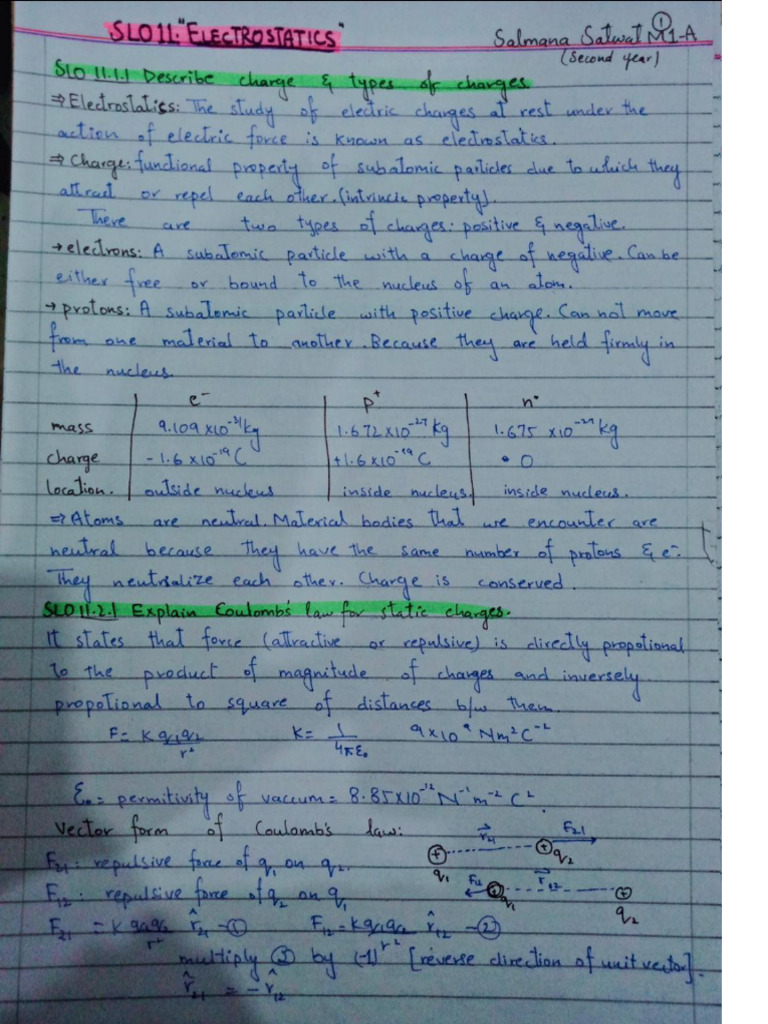 SLO 11. "ELECTROSTATICS"
①
Salmana Satwat M1-A
(Second year)
SLO 11.1.1 Describe charge & types of charges
⇒ Electrostatics: The study of electric charges at rest under the
action of electric force is known as electrostatics.
⇒ Charge: functional property of subatomic particles due to which they
attract or repel each other. (intrincic property).
There are two types of charges: positive & negative.
→ electrons: A subatomic particle with a charge of negative. Can be
either free or bound to the nucleus of an atom.
→ protons: A subatomic particle with positive charge. Can not move
from one material to another. Because they are held firmly in
the nucleus.
e⁻ p⁺ n°
mass 9.109 x10⁻³¹kg 1.672 x10⁻²⁷ kg 1.675 x10⁻²⁷ kg
charge -1.6 x10⁻¹⁹ C +1.6 x10⁻¹⁹ C 0
location. outside nucleus inside nucleus. inside nucleus.
⇒ Atoms are neutral. Material bodies that we encounter are
neutral because they have the same number of protons & e⁻.
They neutrialize each other. Charge is conserved.
SLO 11.2.1 Explain Coulomb's law for static charges.
It states that force (attractive or repulsive) is directly propotional
to the product of magnitude of charges and inversely
propotional to square of distances b/w them.
F = K q₁q₂ / r² K = 1 / 4πε₀ 9x10⁹ Nm²C⁻²
ε₀ = permitivity of vaccum = 8.85x10⁻¹² N⁻¹m⁻² C².
Vector form of Coulomb's law:
r⃗₂₁ F₂₁
q₁ q₂
F₂₁: repulsive force of q₁ on q₂.
F₁₂ r⃗₁₂
q₁ q₂
F₁₂: repulsive force of q₂ on q₁
F₂₁ = K q₁q₂ / r² r̂₂₁ -① F₁₂ = K q₁q₂ / r² r̂₁₂ -②
multiply ② by (-1) [reverse direction of unit vector].
r̂₂₁ = -r̂₁₂